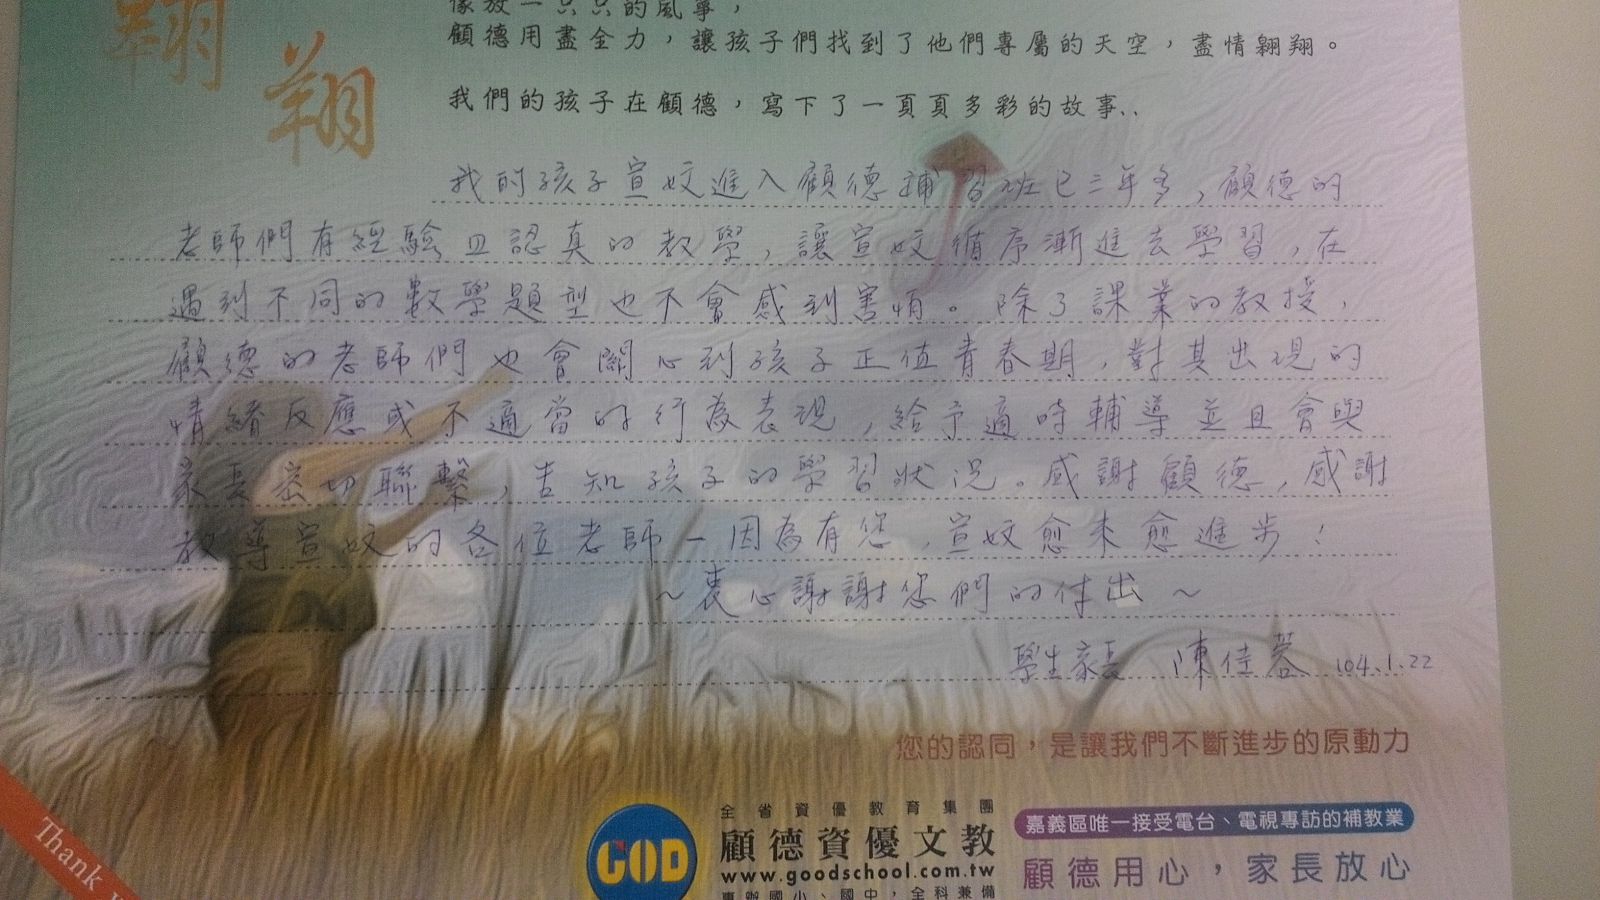 翱翔
像放一只只的風箏，
顧德用盡全力，讓孩子們找到了他們專屬的天空，盡情翱翔。
我們的孩子在顧德，寫下了一頁頁多彩的故事..
我的孩子宣妏進入顧德補習班已三年多，顧德的
老師們有經驗且認真的教學，讓宣妏循序漸進去學習，在
遇到不同的數學題型也不會感到害怕。除了課業的教授，
顧德的老師們也會關心到孩子正值青春期，對其出現的
情緒反應或不適當的行為表現，給予適時輔導並且會與
家長密切聯繫，告知孩子的學習狀況。感謝顧德，感謝
教導宣妏的各位老師－因為有您，宣妏愈來愈進步！
～衷心謝謝您們的付出～
學生家長 陳佳蓉 104.1.22
您的認同，是讓我們不斷進步的原動力
全省資優教育集團
GOD 顧德資優文教
www.goodschool.com.tw
專辦國小、國中，全科兼備
嘉義區唯一接受電台、電視專訪的補教業
顧德用心，家長放心
Thank